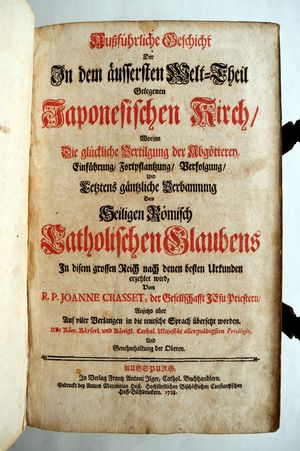 Außführliche Geschicht
Der
In dem äussersten Welt-Theil
Gelegenen
Japonesischen Kirch/
Worinn
Die glückliche Vertilgung der Abgötterey,
Einführung/ Fortpflantzung/ Verfolgung/
Und
Letztens gäntzliche Verbannung
Des
Heiligen Römisch
Catholischen Glaubens
In disem grossen Reich nach denen besten Urkunden
erzehlet wird,
Von
R. P. JOANNE CRASSET, der Gesellschafft JEsu Priestern/
Anjetzo aber
Auf viler Verlangen in die teutsche Sprach übersetzt worden.
Mit Röm. Käyserl. und Königl. Cathol. Majestät allergnädigsten Privilegio,
Und
Genehmhaltung der Oberen.
AUGSPURG,
In Verlag Frantz Antoni Ilger, Cathol. Buchhandlern.
Gedruckt bey Antoni Maximilian Heiß, Hochfürstlichen Bischöfflichen Constantzischen
Hoff-Buchdruckern. 1738.